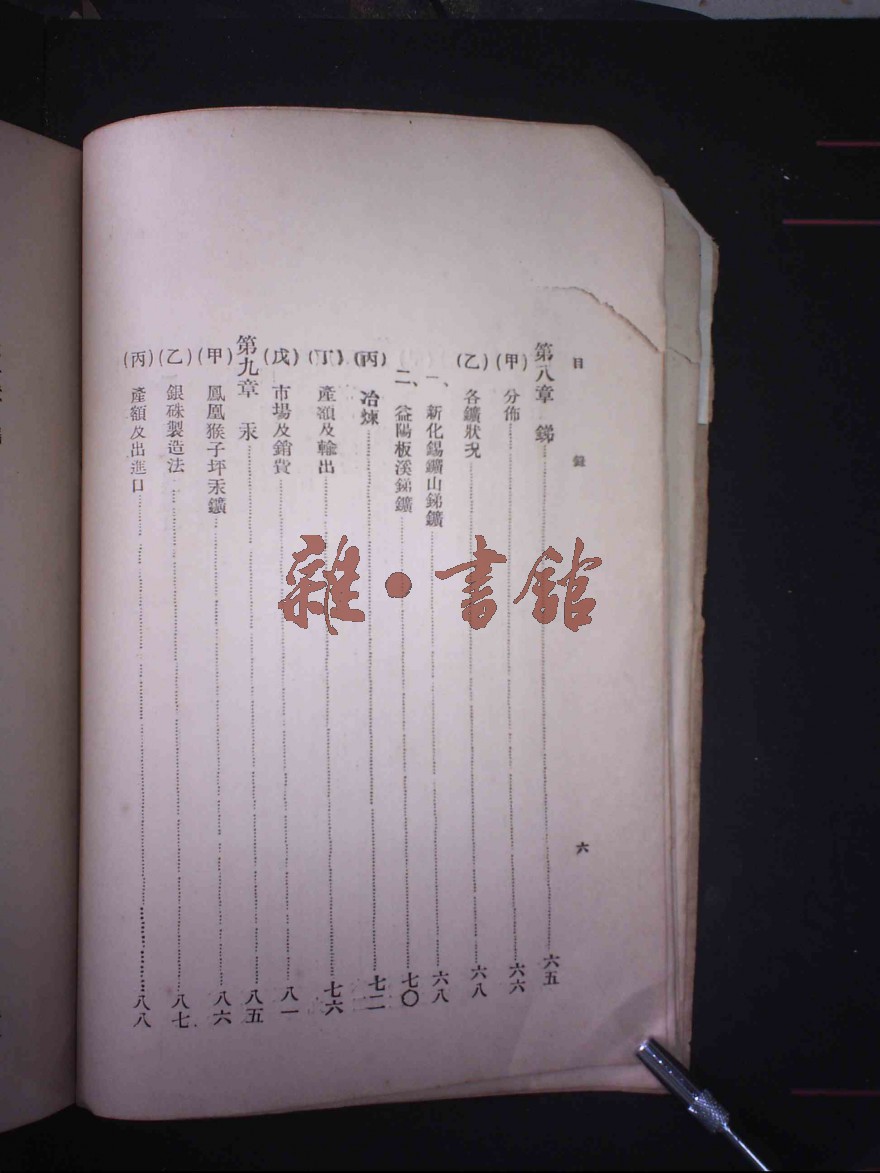 目錄 六
第八章 銻 六五
(甲) 分佈 六六
(乙) 各鑛狀況 六八
一、 新化錫鑛山銻鑛 六八
二、 益陽板溪銻鑛 七〇
(丙) 冶煉 七二
(丁) 產額及輸出 七六
(戊) 市場及銷費 八一
第九章 汞 八五
(甲) 鳳凰猴子坪汞鑛 八六
(乙) 銀硃製造法 八七
(丙) 產額及出進口 八八
雜·書館